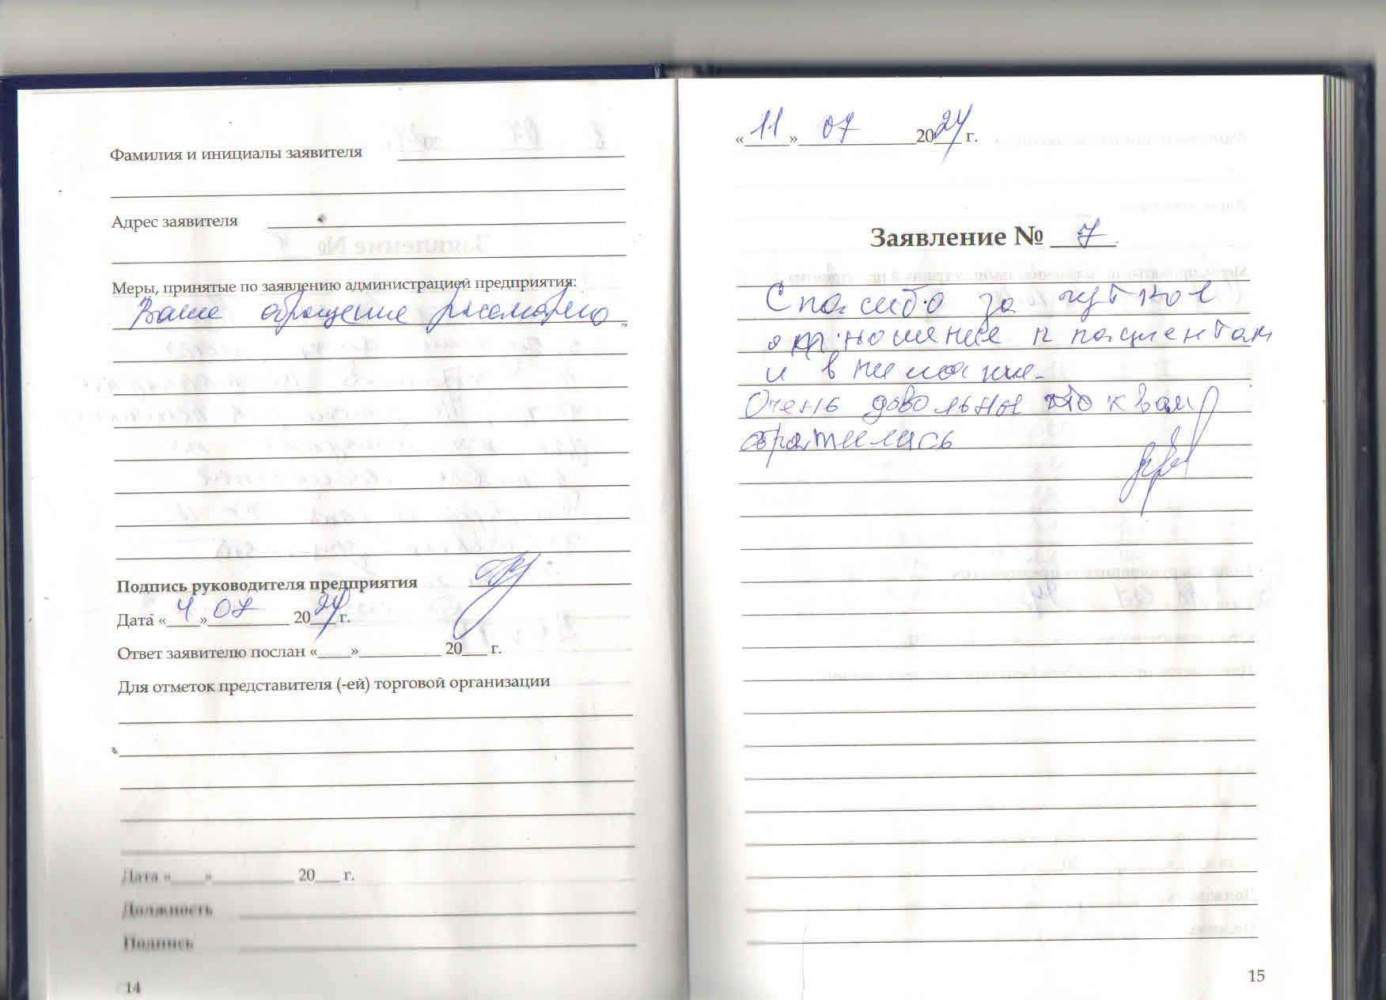 Фамилия и инициалы заявителя
Адрес заявителя
Меры, принятые по заявлению администрацией предприятия:
Ваше обращение рассмотрено.
Подпись руководителя предприятия
Дата «4» 07 2024 г.
Ответ заявителю послан «____»__________ 20___ г.
Для отметок представителя (-ей) торговой организации
Дата «____»__________ 20___ г.
Должность
Подпись
14
«11» 07 2024 г.
Заявление № 7
Спасибо за чуткое
отношение к пациентам
и внимание.
Очень довольны что к вам
обратилась
15